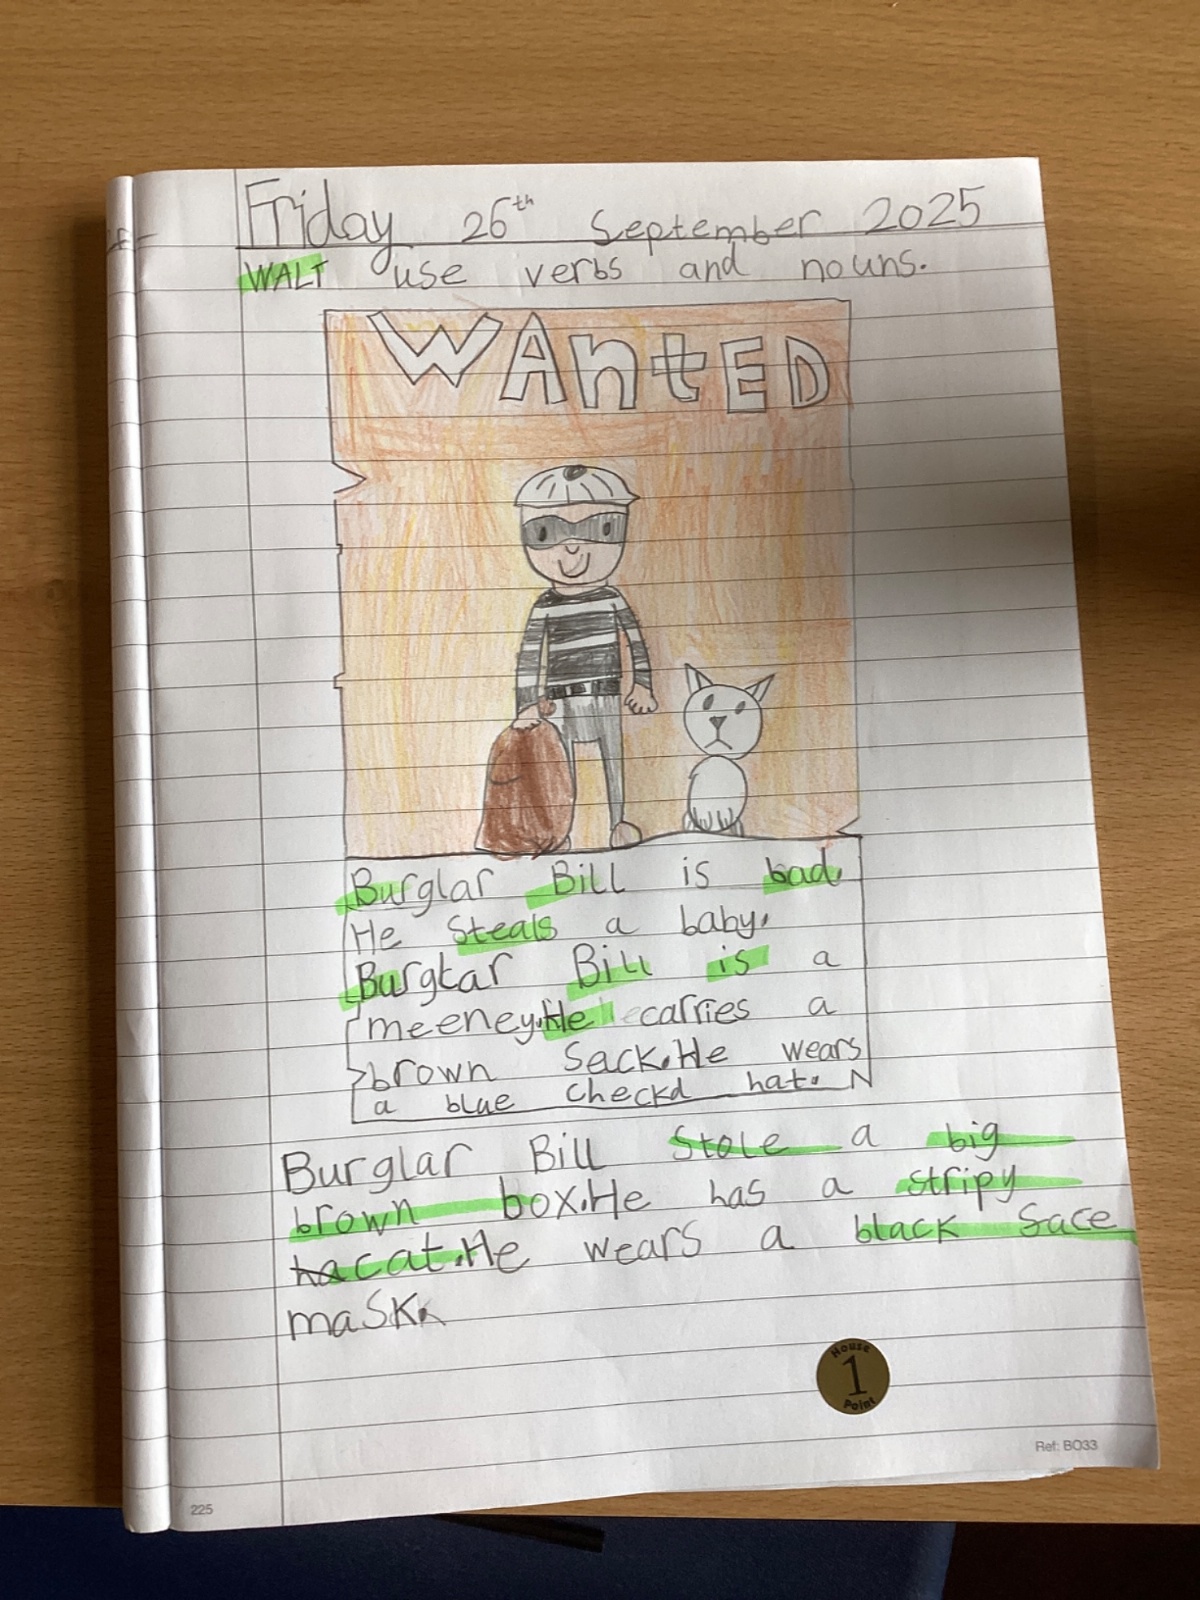 Friday 26th September 2025
WALT use verbs and nouns.
WAntED
Burglar Bill is bad.
He Steals a baby.
Burglar Bill is a
meeney.He carries a
brown Sack.He wears
a blue checkd hat.
Burglar Bill Stole a big
brown box.He has a stripy
ha cat.He wears a black face
maSK.
House
1
Point
Ref: BO33
225